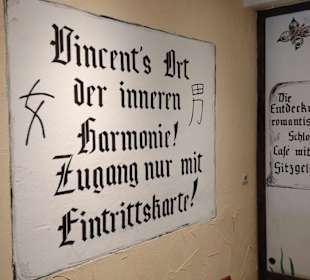 Vincent's Ort
der inneren
Harmonie!
Zugang nur mit
Eintrittskarte!
女
男
Die
Entdecku
romantis
Schlo
Cafe mit
Sitzgel